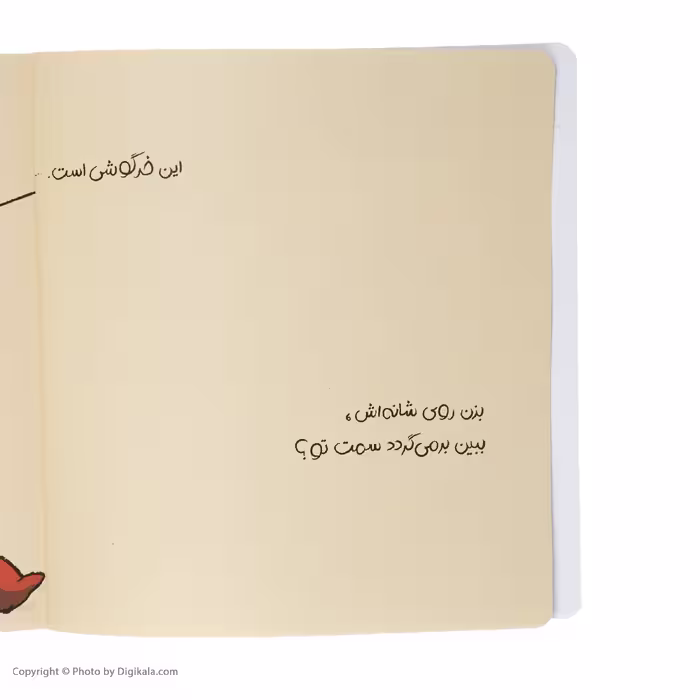 این خرگوشی است.
بزن روی شانه‌اش،
ببین برمی‌گردد سمت تو؟
Copyright © Photo by Digikala.com